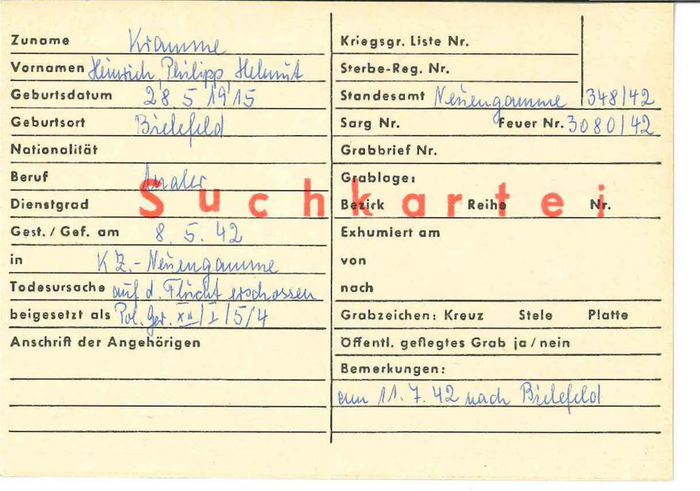 Zuname Kramme
Vornamen Heinrich, Philipp, Helmut
Geburtsdatum 28 5 1915
Geburtsort Bielefeld
Nationalität
Beruf Maler
Dienstgrad
Gest. / Gef. am 8. 5. 42
in KZ.-Neuengamme
Todesursache auf d. Flucht erschossen
beigesetzt als Pol. Ger.
Anschrift der Angehörigen
Suchkartei
Kriegsgr. Liste Nr.
Sterbe-Reg. Nr.
Standesamt Neuengamme 348/42
Sarg Nr. Feuer Nr. 3080/42
Grabbrief Nr.
Grablage:
Bezirk Reihe Nr.
Exhumiert am
von
nach
Grabzeichen: Kreuz Stele Platte
Öffentl. gepflegtes Grab ja / nein
Bemerkungen:
am 11. 7. 42 nach Bielefeld